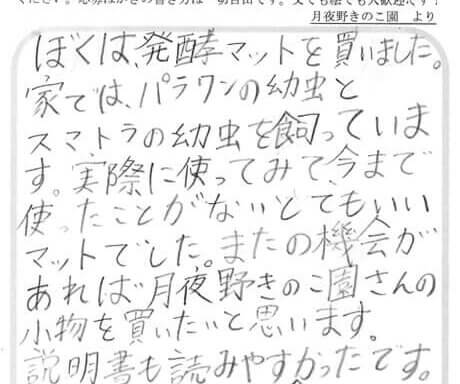 ください。応募はがきの書き方は一切自由です。文でも絵でも大歓迎です！
月夜野きのこ園 より
ぼくは、発酵マットを買いました。
家では、パラワンの幼虫と
スマトラの幼虫を飼っていま
す。実際に使ってみて、今まで
使ったことがないとてもいい
マットでした。またの機会が
あれば月夜野きのこ園さんの
小物を買いたいと思います。
説明書も読みやすかったです。